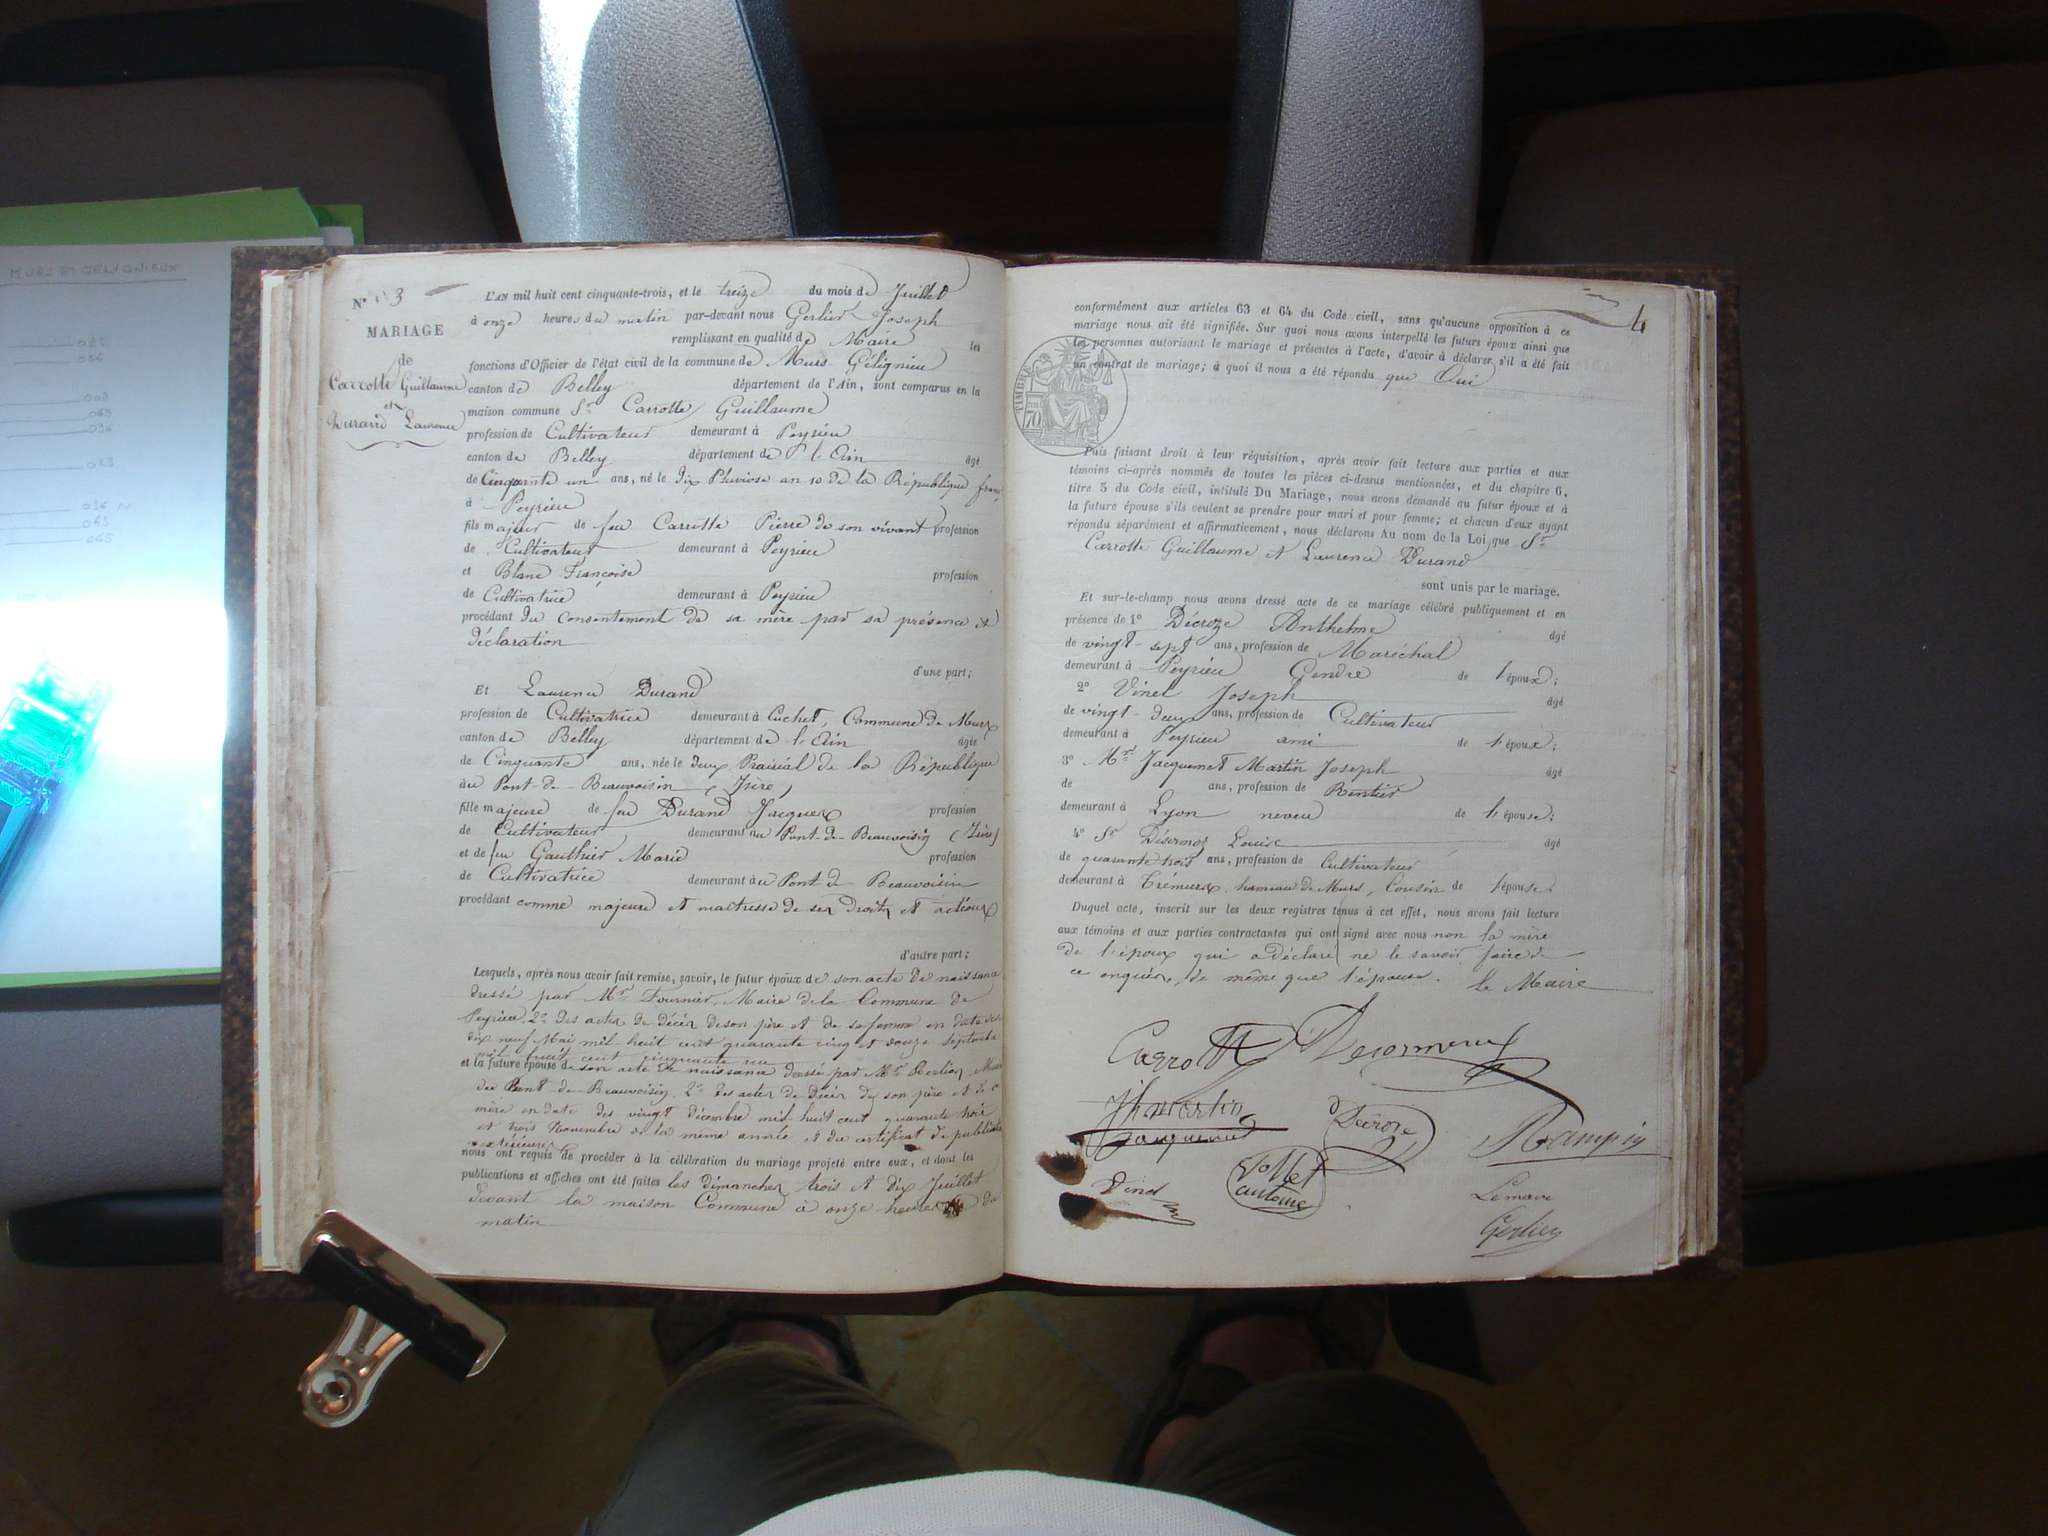 MURS ET GELIGNIEUX
N° 3
MARIAGE
de
Carrotte Guillaume
et
Durand Laurence
L'AN mil huit cent cinquante-trois, et le treize du mois de Juillet
à onze heures du matin par-devant nous Gerlier Joseph
remplissant en qualité de Maire les
fonctions d'Officier de l'état civil de la commune de Murs Gélignieu
canton de Belley département de l'Ain, sont comparus en la
maison commune Sr Carrotte Guillaume
profession de Cultivateur demeurant à Peyrieu
canton de Belley département de l'Ain âgé
de Cinquante un ans, né le dix Pluviose an 10 de la République franç
à Peyrieu
fils majeur de feu Carrotte Pierre de son vivant profession
de Cultivateur demeurant à Peyrieu
et Blanc Françoise profession
de Cultivatrice demeurant à Peyrieu
procédant du consentement de sa mère par sa présence et
déclaration
d'une part;
Et Laurence Durand
profession de Cultivatrice demeurant à Cuchet, Commune de Murs
canton de Belley département de l'Ain âgée
de Cinquante ans, née le deux Prairial de la République
au Pont-de-Beauvoisin (Isère)
fille majeure de feu Durand Jacques profession
de Cultivateur demeurant au Pont-de-Beauvoisin (Isère)
et de feu Gauthier Marie profession
de Cultivatrice demeurant au Pont de Beauvoisin
procédant comme majeure et maîtresse de ses droits et actions
d'autre part;
Lesquels, après nous avoir fait remise, savoir, le futur époux de son acte de naissance
dressé par Mr Fournier, Maire de la Commune de
Peyrieu, 2° des actes de décès de son père et de sa femme en date des
dix neuf Mai mil huit cent quarante cinq et douze septembre
mil huit cent cinquante un
et la future épouse de son acte de naissance dressé par Mr Maire
du Pont de Beauvoisin, 2° des actes de Décès de son père et de sa
mère en date des vingt décembre mil huit cent quarante trois
et trois Novembre de la même année et du certificat de publication
extérieures
nous ont requis de procéder à la célébration du mariage projeté entre eux, et dont les
publications et affiches ont été faites les dimanches trois et dix Juillet
devant la maison Commune à onze heures du
matin
4
conformément aux articles 63 et 64 du Code civil, sans qu'aucune opposition à ce
mariage nous ait été signifiée. Sur quoi nous avons interpellé les futurs époux ainsi que
les personnes autorisant le mariage et présentes à l'acte, d'avoir à déclarer s'il a été fait
un contrat de mariage; à quoi il nous a été répondu que Oui
TIMBRE
70
Puis faisant droit à leur réquisition, après avoir fait lecture aux parties et aux
témoins ci-après nommés de toutes les pièces ci-dessus mentionnées, et du chapitre 6,
titre 5 du Code civil, intitulé Du Mariage, nous avons demandé au futur époux et à
la future épouse s'ils veulent se prendre pour mari et pour femme; et chacun d'eux ayant
répondu séparément et affirmativement, nous déclarons Au nom de la Loi que Sr
Carrotte Guillaume et Laurence Durand
sont unis par le mariage.
Et sur-le-champ nous avons dressé acte de ce mariage célébré publiquement et en
présence de 1° Décroze Anthelme âgé
de vingt-sept ans, profession de Maréchal
demeurant à Peyrieu Gendre de l'époux;
2° Vinet Joseph âgé
de vingt-deux ans, profession de Cultivateur
demeurant à Peyrieu ami de l'époux;
3° Mr Jacquemet Martin Joseph âgé
de ans, profession de Rentier
demeurant à Lyon neveu de l'épouse;
4° Sr Désormos Louise âgé
de quarante trois ans, profession de Cultivateur
demeurant à Trémurs hameau de Murs, Cousin de l'épouse.
Duquel acte, inscrit sur les deux registres tenus à cet effet, nous avons fait lecture
aux témoins et aux parties contractantes qui ont signé avec nous non la mère
de l'époux qui a déclaré ne le savoir faire de
ce enquise, de même que l'épouse. le Maire
Carrotte
Jh martin
Jacquemet
Décroze
Rampin
Vinet
antoine
Lemaire
Gerlier